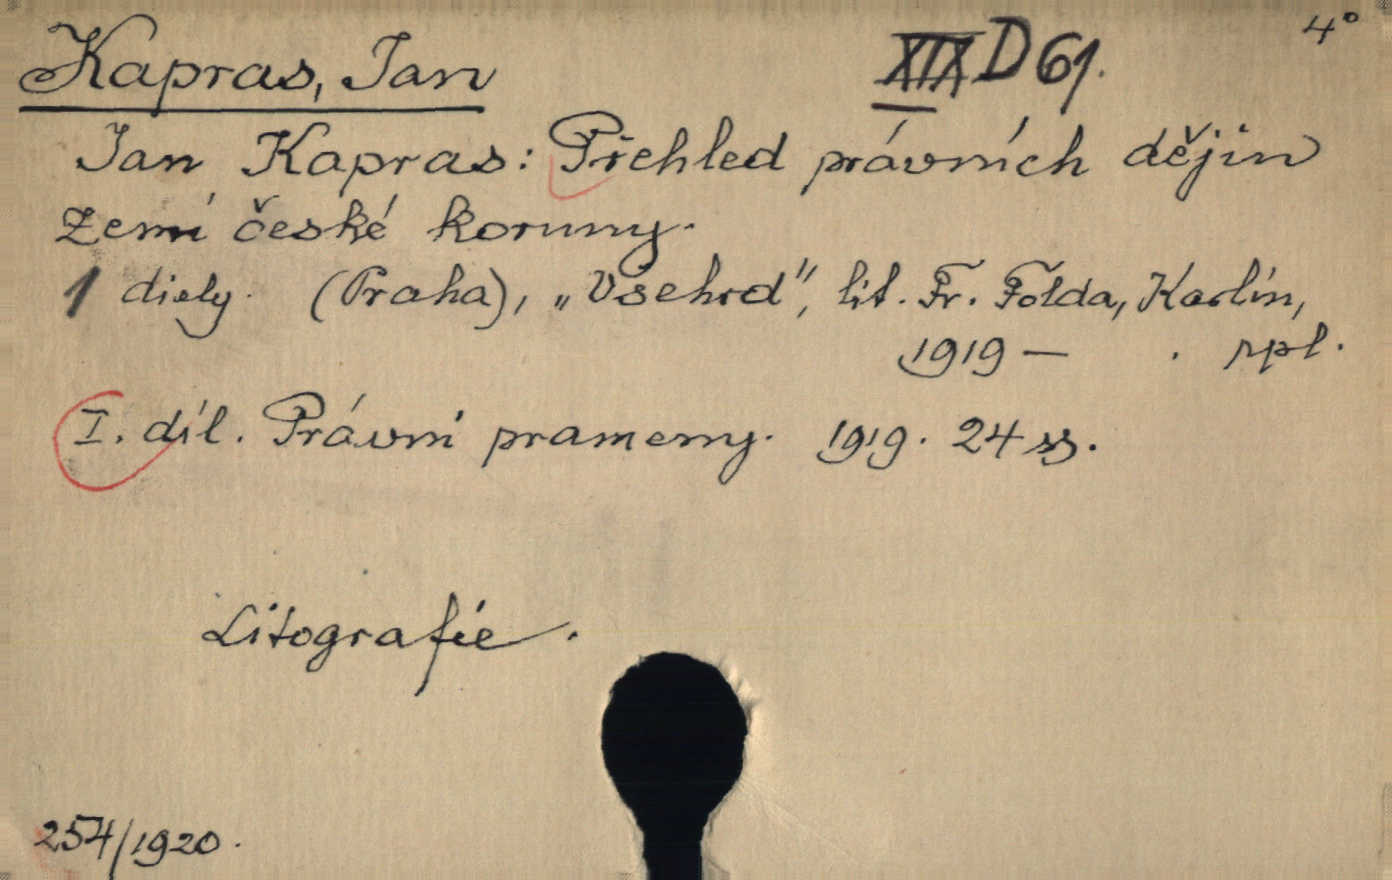 Kapras, Jan XIX D 61. 4°
Jan Kapras: Přehled právních dějin
zemí české koruny.
1 diely. (Praha), „Všehrd", lit. Fr. Folda, Karlín,
1919 — .
I. díl. Právní prameny. 1919. 24 ss.
Litografie.
254/1920.